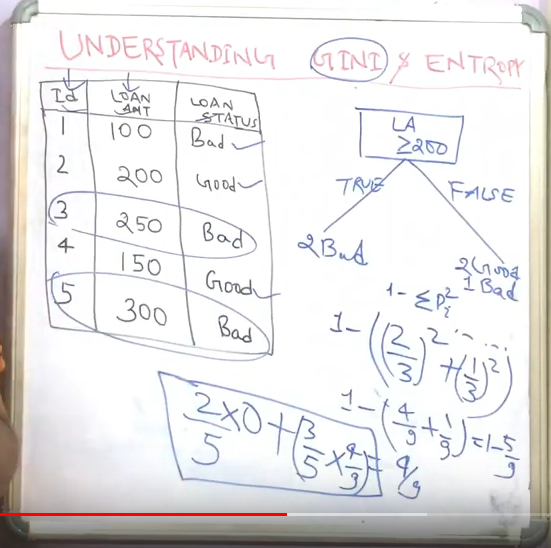 UNDERSTANDING GINI & ENTROPY
Id LOAN AMT LOAN STATUS
1 100 Bad
2 200 Good
3 250 Bad
4 150 Good
5 300 Bad
LA
≥200
TRUE FALSE
2 Bad
2 Good
1 Bad
1 - ΣPᵢ²
1 - ((2/3)² + (1/3)²)
1 - (4/9 + 1/9) = 1 - 5/9
= 4/9
2/5 × 0 + (3/5 × 4/9)